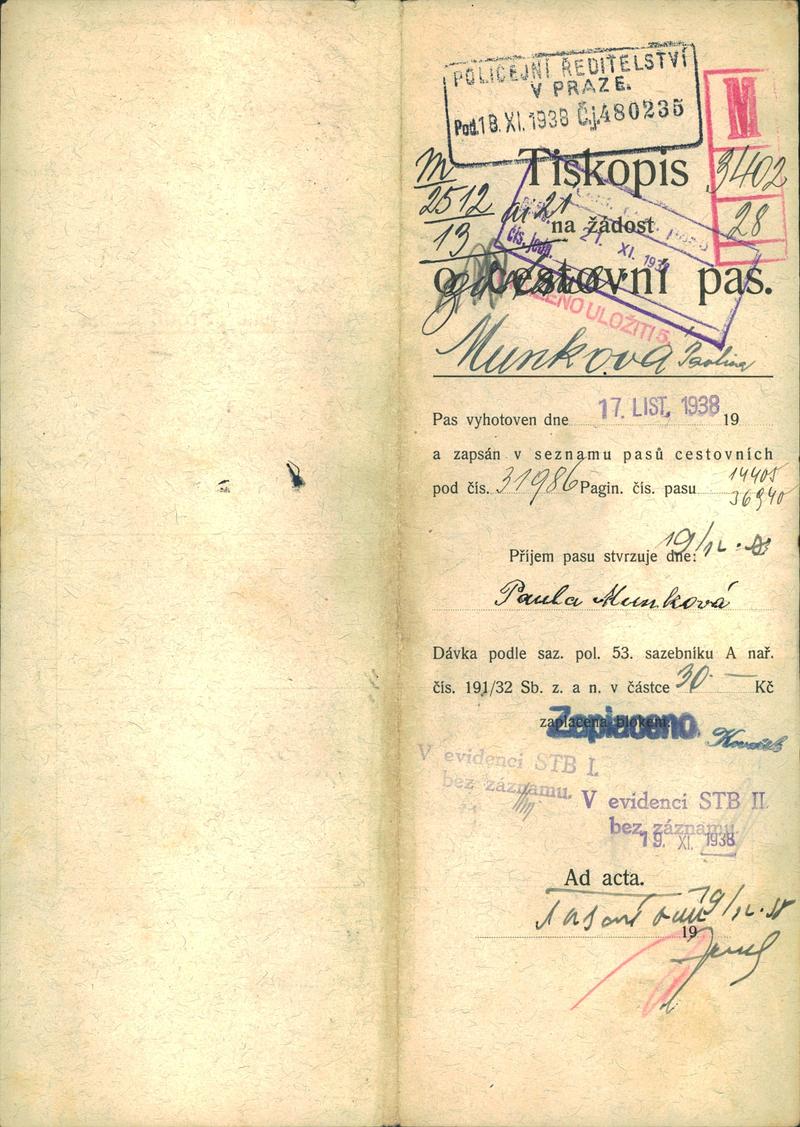 POLICEJNÍ ŘEDITELSTVÍ
V PRAZE.
Pod. 18. XI. 1938 Čj. 480235
M
3402
28
m
2512
13
Tiskopis
na žádost
čís. jedn.
21. XI. 193
o cestovní pas.
ULOŽITI 5.
Munková Paolina
Pas vyhotoven dne 17. LIST. 1938 19
a zapsán v seznamu pasů cestovních
pod čís. 31986 Pagin. čís. pasu 14405
36940
Příjem pasu stvrzuje dne: 19/12.
Paula Munková
Dávka podle saz. pol. 53. sazebníku A nař.
čís. 191/32 Sb. z. a n. v částce 30 — Kč
zaplacena blokem.
Zaplaceno.
V evidenci STB I.
bez záznamu.
V evidenci STB II.
bez záznamu.
19. XI. 1938
Ad acta.
19/12. 38
19